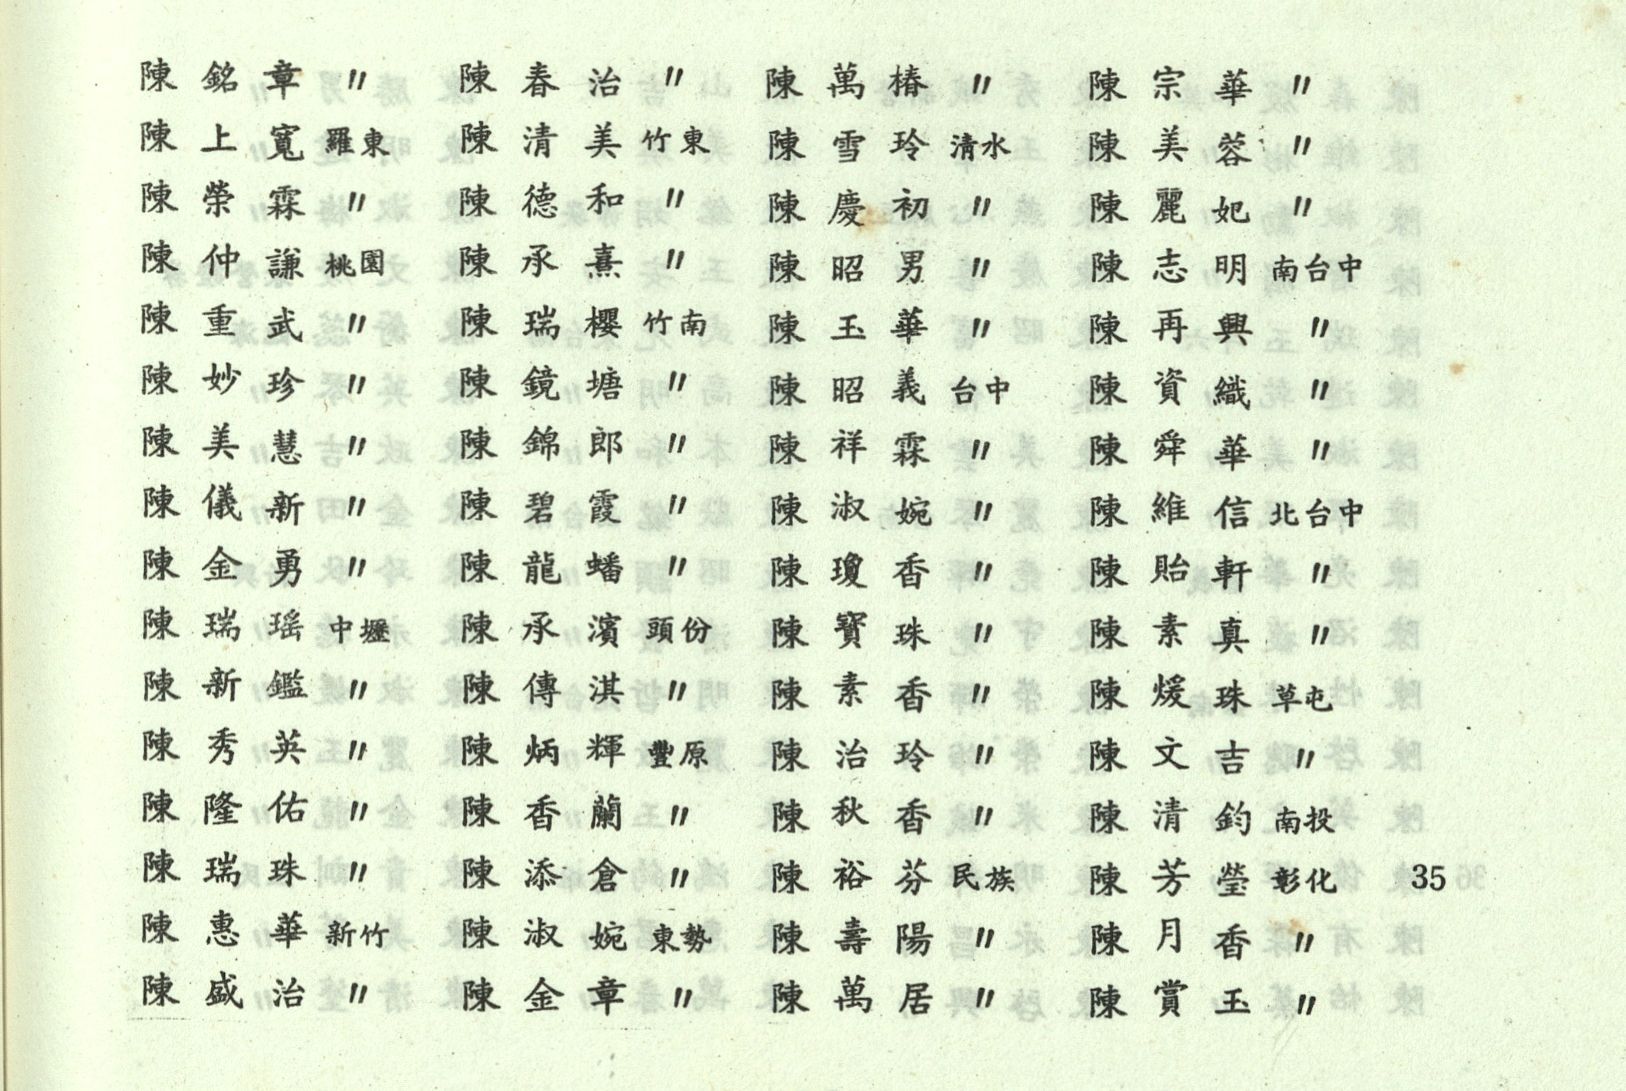 陳銘章〃
陳上寬羅東
陳榮霖〃
陳仲謙桃園
陳重武〃
陳妙珍〃
陳美慧〃
陳儀新〃
陳金勇〃
陳瑞瑤中壢
陳新鑑〃
陳秀英〃
陳隆佑〃
陳瑞珠〃
陳惠華新竹
陳盛治〃
陳春治〃
陳清美竹東
陳德和〃
陳承熹〃
陳瑞櫻竹南
陳鏡塘〃
陳錦郎〃
陳碧霞〃
陳龍蟠〃
陳承濱頭份
陳傳淇〃
陳炳輝豐原
陳香蘭〃
陳添倉〃
陳淑婉東勢
陳金章〃
陳萬椿〃
陳雪玲清水
陳慶初〃
陳昭男〃
陳玉華〃
陳昭義台中
陳祥霖〃
陳淑婉〃
陳瓊香〃
陳寶珠〃
陳素香〃
陳治玲〃
陳秋香〃
陳裕芬民族
陳壽陽〃
陳萬居〃
陳宗華〃
陳美蓉〃
陳麗妃〃
陳志明南台中
陳再興〃
陳資織〃
陳舜華〃
陳維信北台中
陳貽軒〃
陳素真〃
陳煖珠草屯
陳文吉〃
陳清鈞南投
陳芳瑩彰化
陳月香〃
陳賞玉〃
35